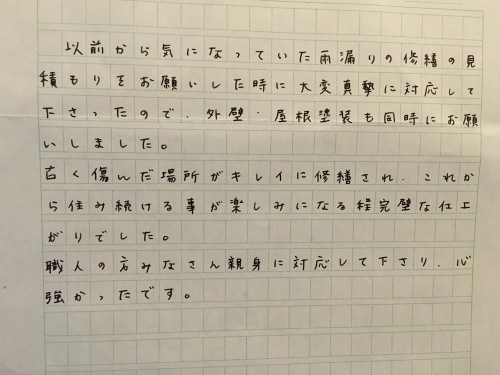 以前から気になっていた雨漏りの修繕の見
積もりをお願いした時に大変真摯に対応して
下さったので、外壁・屋根塗装も同時にお願
いしました。
古く傷んだ場所がキレイに修繕され、これか
ら住み続ける事が楽しみになる程完璧な仕上
がりでした。
職人の方みなさん親身に対応して下さり、心
強かったです。